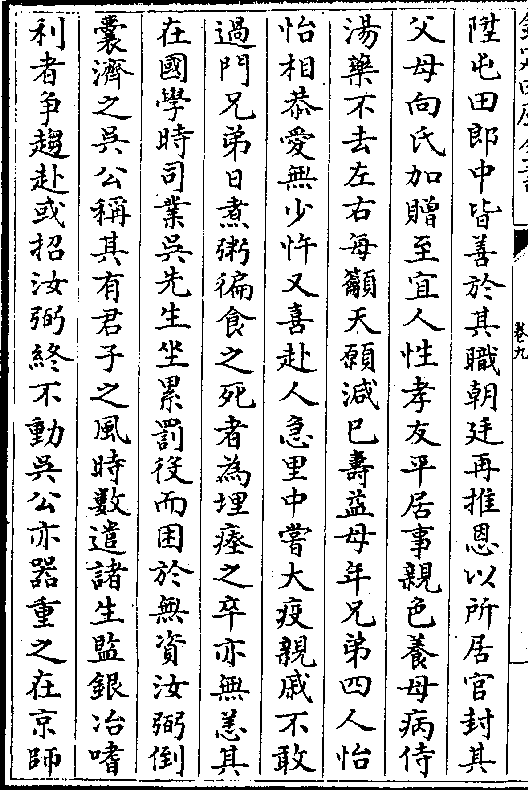 卷九
陞屯田郎中皆善於其職朝廷再推恩以所居官封其
父母向氏加贈至宜人性孝友平居事親色養母病侍
湯藥不去左右每籲天願減已壽益母年兄弟四人怡
怡相恭愛無少忤又喜赴人急里中嘗大疫親戚不敢
過門兄弟日煮粥徧食之死者為埋瘞之卒亦無恙其
在國學時司業吳先生坐累罰役而困於無資汝弼倒
囊濟之吳公稱其有君子之風時數遣諸生監銀冶嗜
利者争趨赴或招汝弼終不動吳公亦器重之在京師